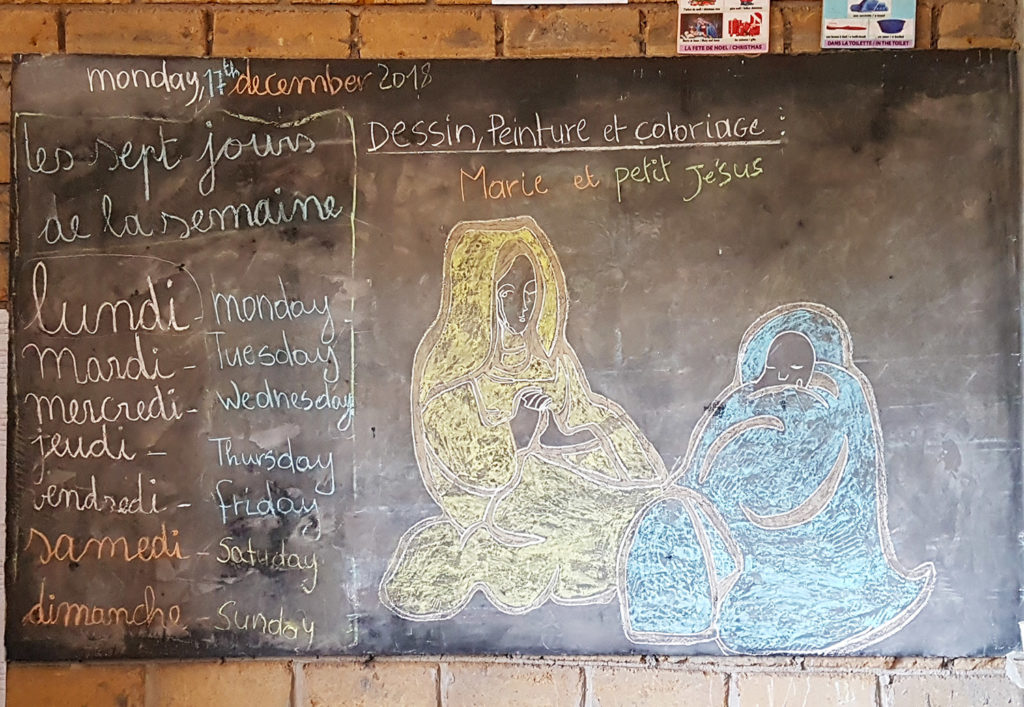 LA FETE DE NOEL / CHRISTMAS
DANS LA TOILETTE / IN THE TOILET
monday, 17th december 2018
les sept jours
de la semaine
lundi - monday
Mardi - Tuesday
mercredi - Wednesday
jeudi - Thursday
vendredi - friday
samedi - Satuday
dimanche - Sunday
Dessin, Peinture et coloriage :
Marie et petit Jésus